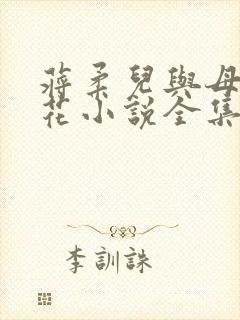 蔣柔兒與母
花小說全集
李訓誅